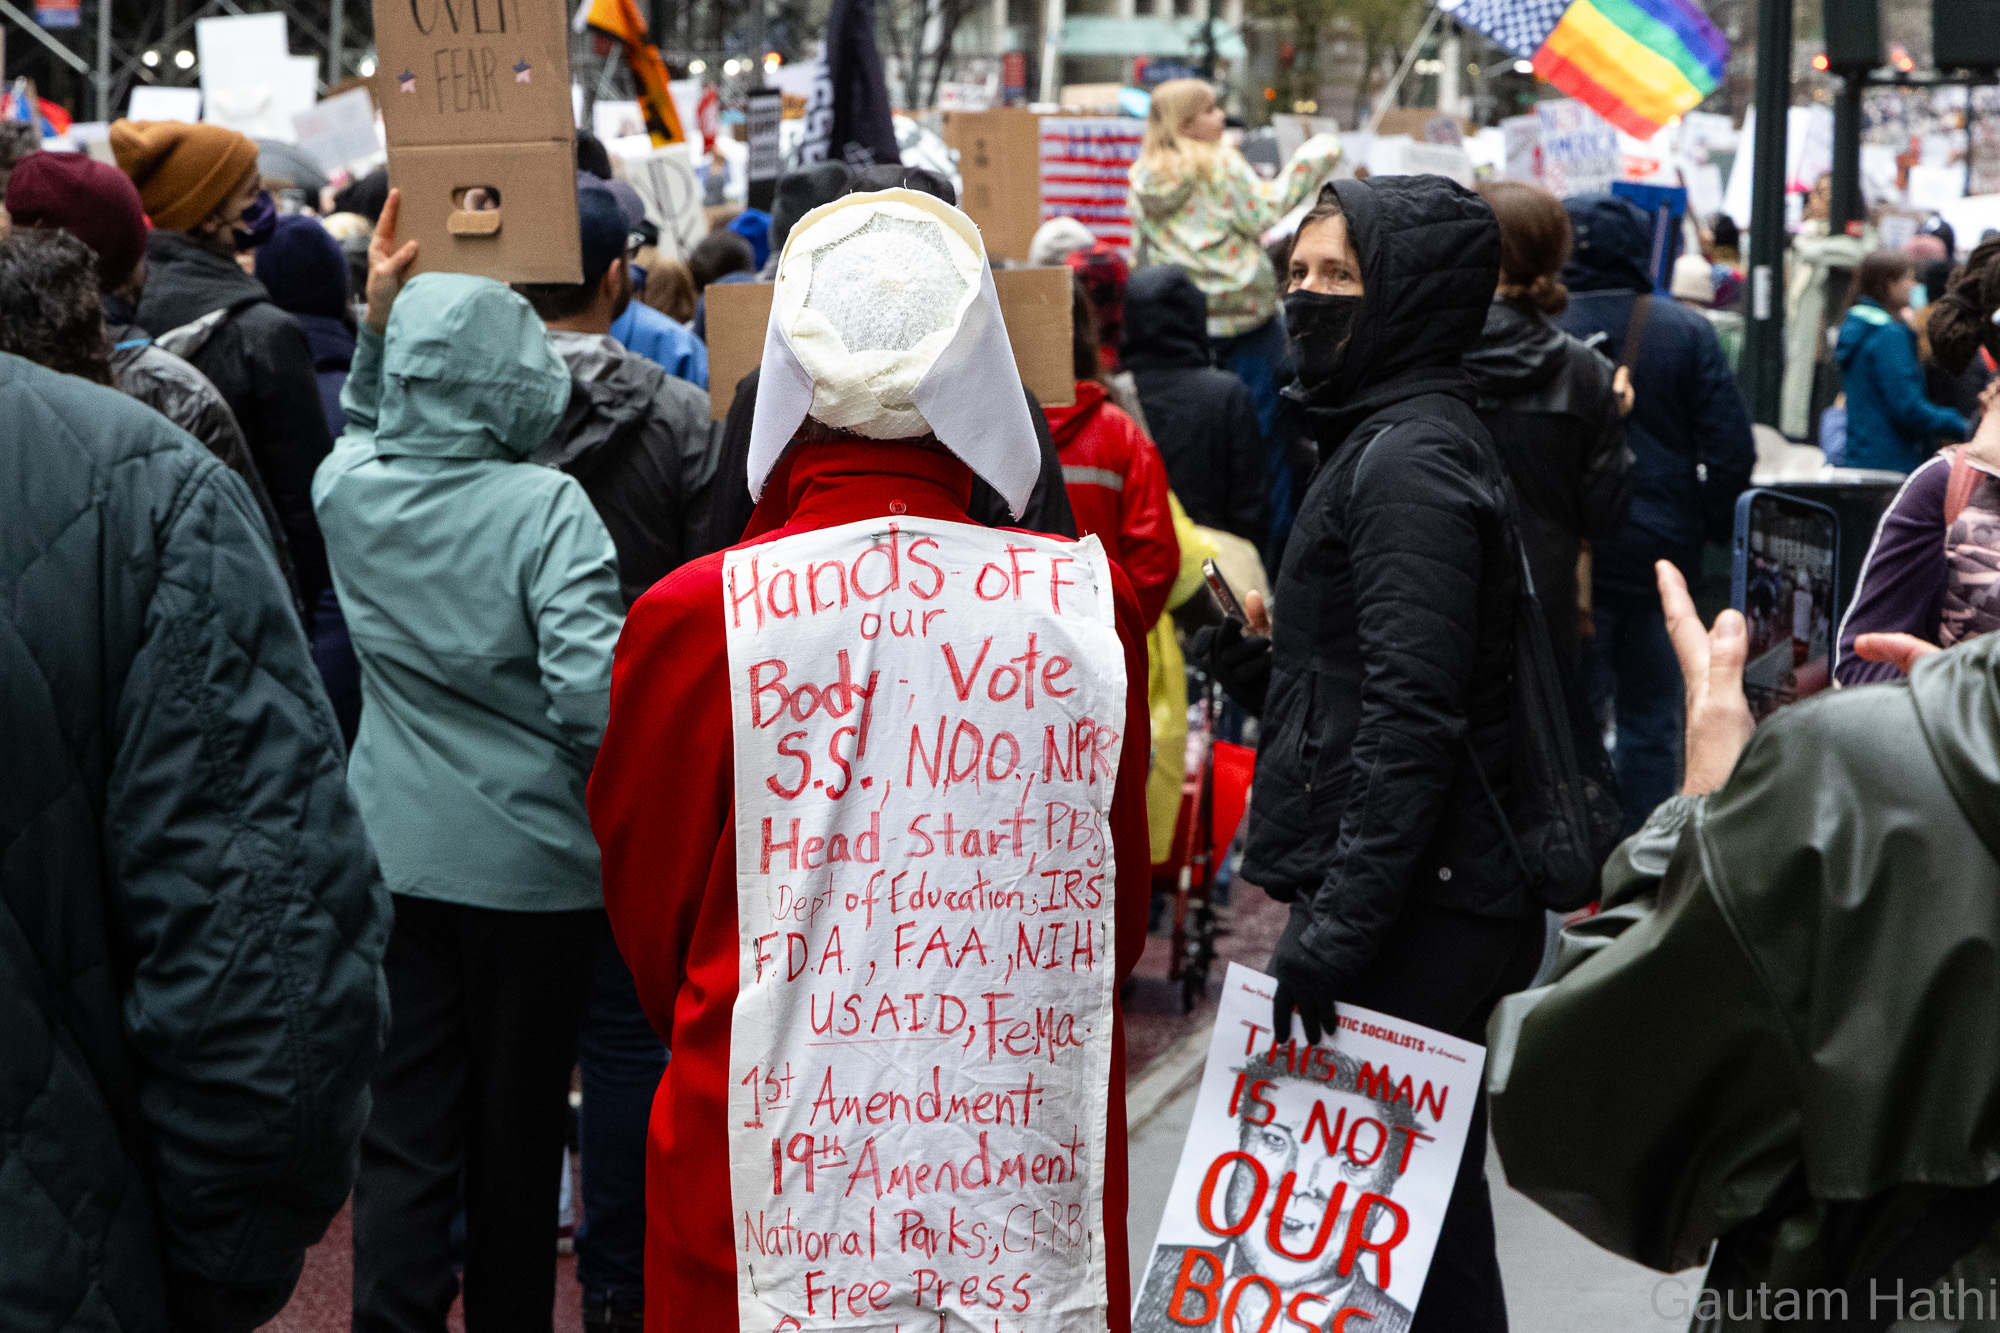 OVER
FEAR
Hands-OFF
our
Body; Vote
S.S., N.O.O., NPR
Head-Start, P.B.S
Dept of Education; IRS
F.D.A., FAA., N.I.H.
U.S.A.I.D, FeMa.
1st Amendment.
19th Amendment
National Parks; C.F.P.B;
Free Press
SOCIALISTS of America
THIS MAN
IS NOT
OUR
BOSS
Gautam Hathi